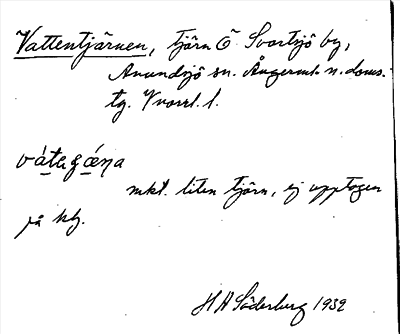 Vattentjärnen, tjärn Ö Svartsjö by,
Anundsjö sn. Ångerml. n. doms.
tg. Vnorrl. l.
mkt. liten tjärn, ej upptagen
på kbl.
H A Söderberg 1932